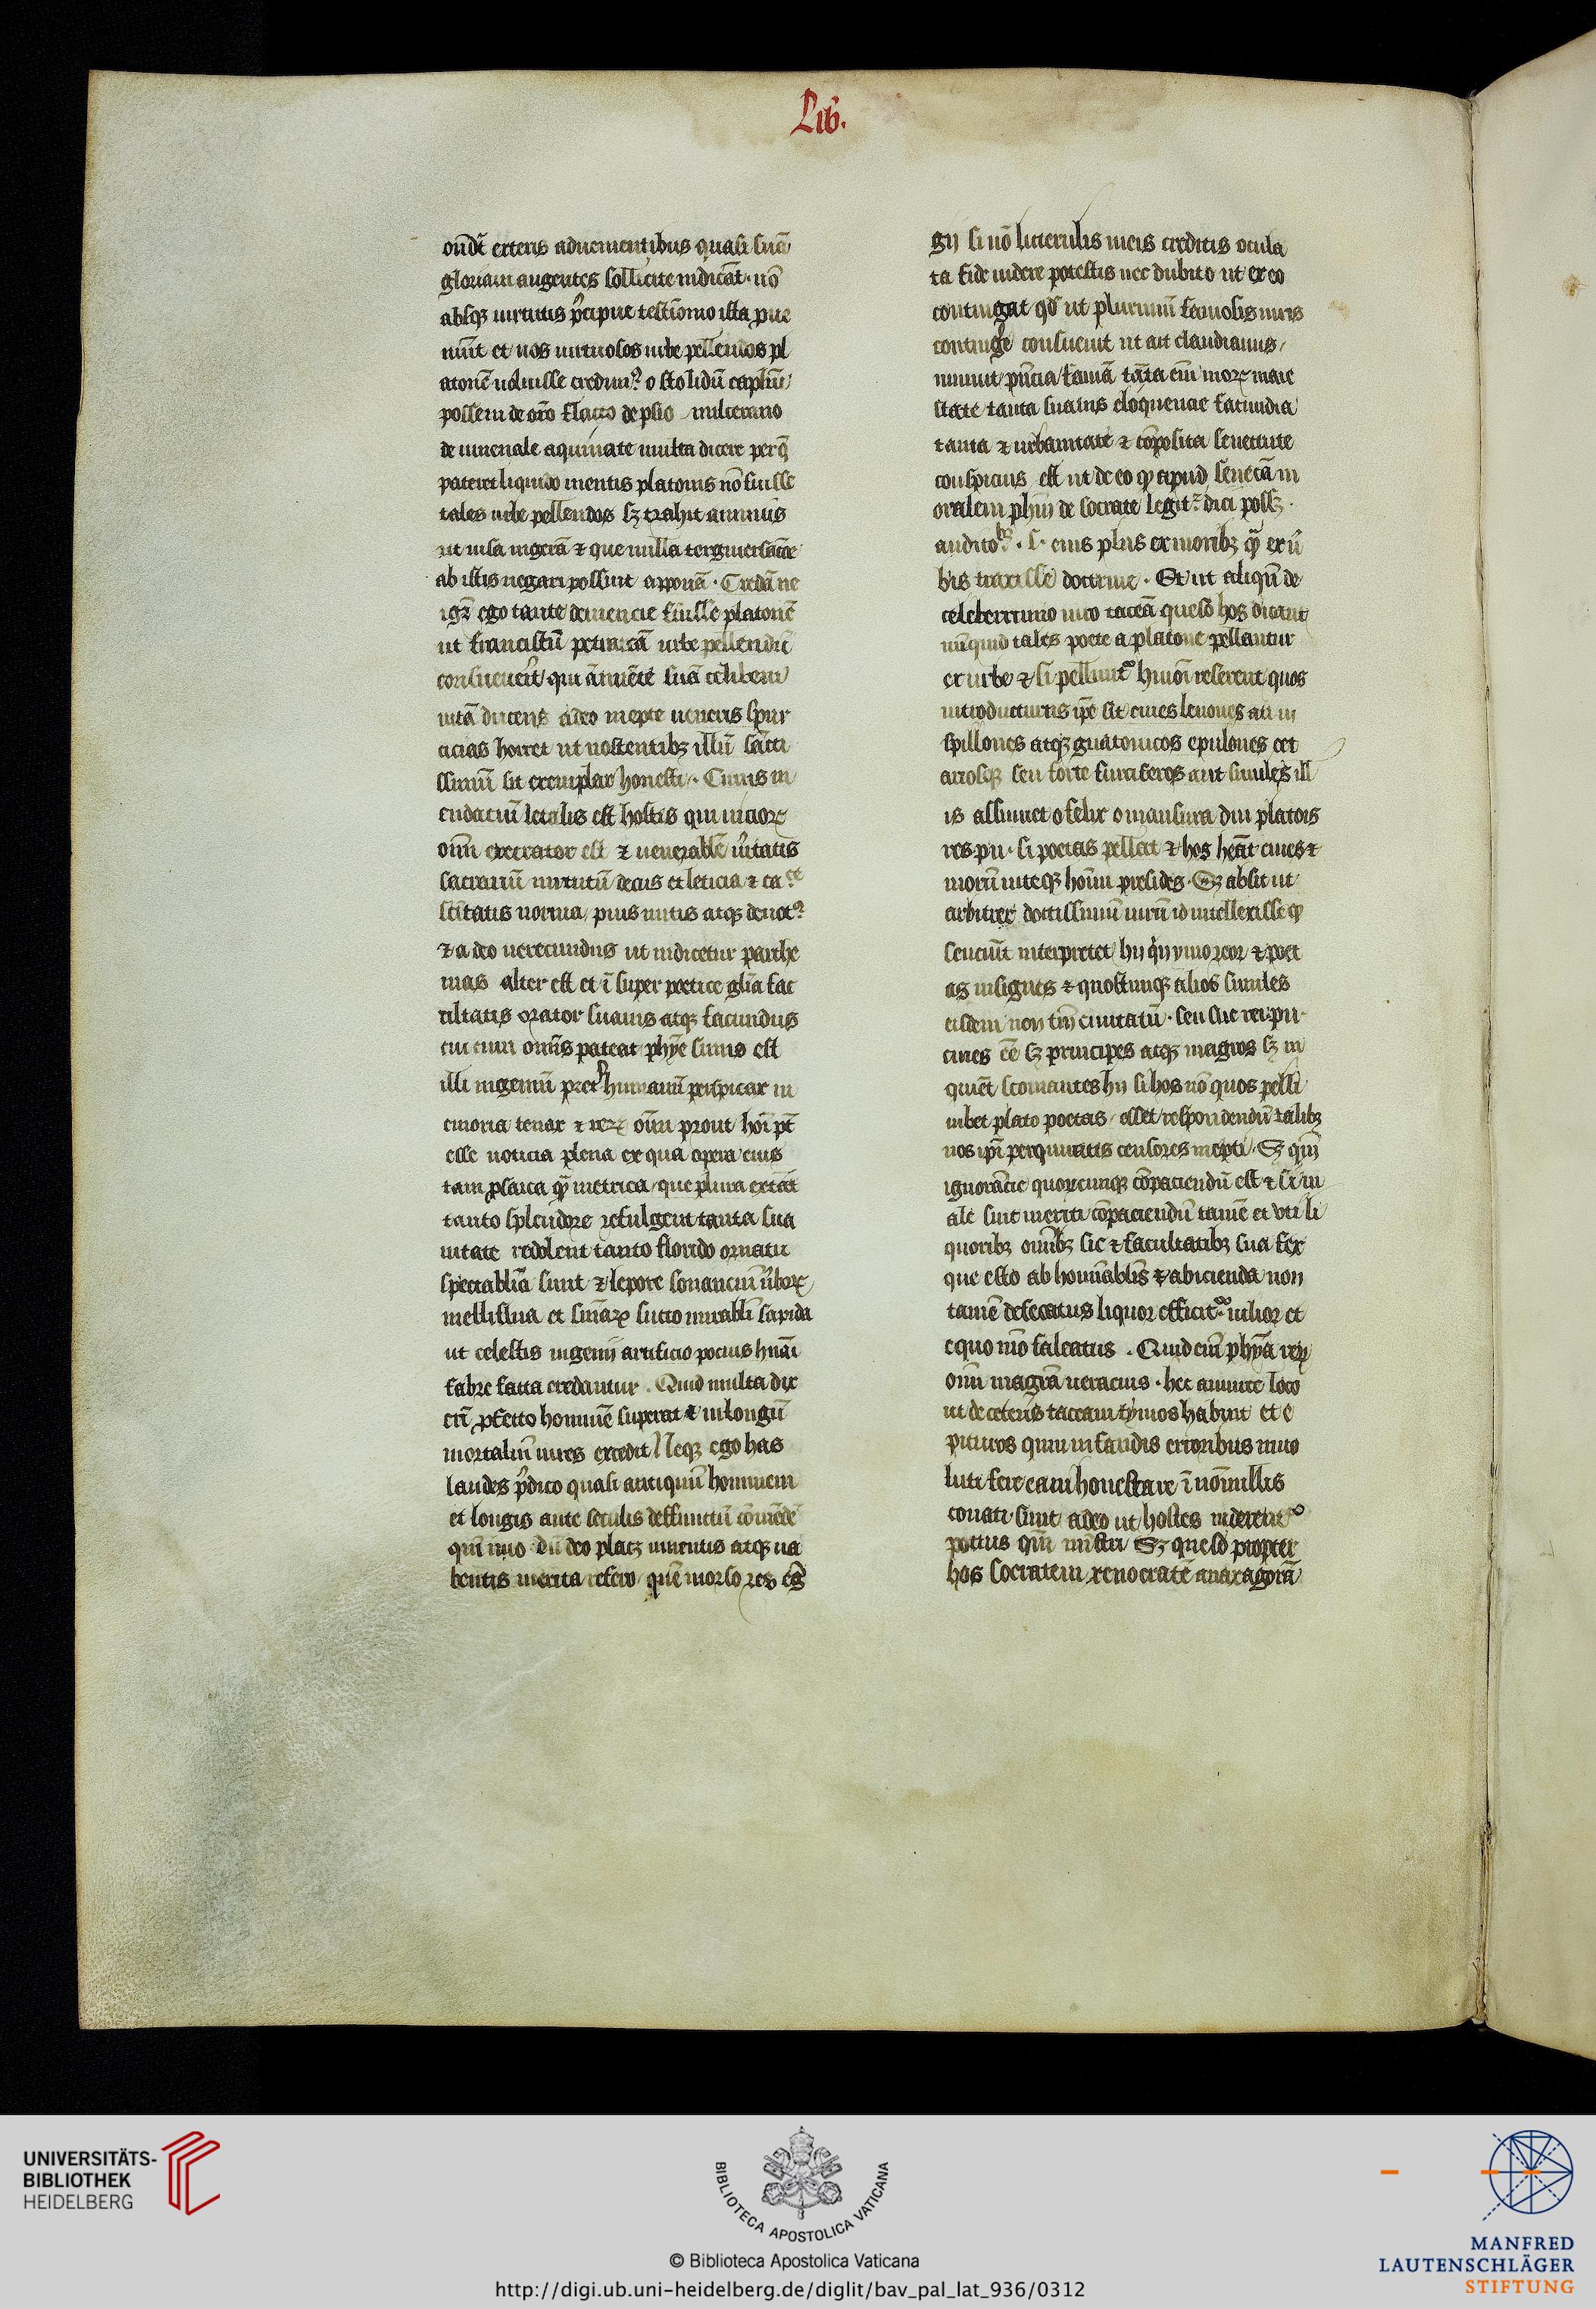 Lib.
ondūt exteris advenientibus quasi suā
gloriam augentes sollicite indicāt · nō
absqꝫ virtutis p̄cipue testīonio ista pue
niūt et nos virtuosos urbe pellendos pl
atonē voluisse credimꝰ o stolidū caplūm
possem de or̄o flacco de psio vulterano
de iuuenale aquinate multa dicere per q̄
pateret liquido mentis platonis nō fuisse
tales urbe pellendos sꝫ trahit animus
ut visa ingerā ⁊ que nulla tergiuersacōe
ab istis negari possint apponā · Credā ne
igr̄ ego tante demencie fuisse platonē
ut franciscū petrarcā urbe pellendū
consueuerit, qui a iuuēte suā celibem
uitā ducens adeo inepte ueneris spur
cicias horret ut noscentibꝫ illū sācti
ssimū sit exemplar honesti · Cuius m
endaciū letalis est hostis qui uiciorꝝ
oīm execrator est ⁊ uenerabile u̓itatis
sacrariū uirtutū decus et leticia ⁊ ca
sctitatis norma, pius mitis atqꝫ deuotꝰ
⁊ adeo uerecundus ut iudicetur parthe
nias alter est et ī super poetice glīa fac
ultatis orator suauis atqꝫ facundus
cui cum omīs pateat phỹe sinus est
illi ingeniū preter humanū perspicax m
emoria tenax ⁊ rerꝝ oīm prout hoī pt̄
esse noticia plena ex qua opera eius
tam psaica qꝫ metrica, que plura extāt
tanto splendore refulgent tanta sua
uitate redolent tanto florido ornatu
spectablīa sunt ⁊ lepore sonanciū ūborꝝ
melliflua et snīarꝝ succo mirabli sapida
ut celestis ingenij artificio pocius hūaī
fabre facta credantur . Quid multa dix
erī pfecto hominē superat ⁊ in longū
mortaliū uires excedit Neqꝫ ego has
laudes p̄dico quasi antiquū hominem
et longis ante seculis deffunctū cōmēdē
quī imo dū deo placꝫ uiuentis atqꝫ ua
lentis merita refero quē morso res eg̓
gij si nō litterulis meis creditis ocula
ta fide uidere potestis nec dubito ut ex eo
contingat qd̄ ut plurimū famosis uiris
continge̓ consueuit ut ait claudianus,
minuit p̄ncia famā tāta em̄ morꝝ maie
state tanta suauis eloquencie facundia
tanta ⁊ urbanitate ⁊ cōposita senectute
conspicuus est ut de eo qꝫ apud senecā m
oralem phm̄ de socrate legitꝛ dici possꝫ ·
auditoꝛbꝫ . s. eius plus ex moribꝫ qꝫ ex ū
bis traxisse doctrine . Et ut aliqūn de
celeberrimo uiro taceā queso hos dicant
nūquid tales poete a platone pellantur
ex urbe ⁊ si pelluntꝛ huiōi reserent quos
introducturus ip̄e sit ciues lenones an m
spillones atqꝫ gnatonicos epulones cet
ariosqꝫ seu forte furciferos aut similes ill
is assumet o felix o mansura diu platōis
respu . si poetas pellat ⁊ hos hēāt ciues ⁊
morū uiteqꝫ hoīm presides . Sꝫ absit ut
arbitrer doctissimū uirū id intellexisse qꝫ
senciūt interpretet hij quȳmo reor ⁊ poet
as insignes ⁊ quoscunqꝫ alios similes
eisdem non tm̄ ciuitatū · seu sue rei pu ·
ciues eē sꝫ principes atqꝫ magros sꝫ in
quiēt stomantes hij si hos nō quos pelli
iubet plato poetas, esset respondendū talibꝫ
nos ip̄i perquiratis censores inepti . Sꝫ qm̄
ignorācie quorcunqꝫ cōpaciendū est ⁊ si m
ale sint meriti cōpaciendū tamē et uti li
quoribꝫ omībꝫ sic ⁊ facultatibꝫ sua fex
que esto ab homīablis ⁊ abicienda non
tamē defecatus liquor efficitꝛ uilior et
equo nīo faleatus . Quid eni phȳa rerꝝ
oīm magrā ueracius · hec annute loco
ut de ceteris taceam cynicos habuit et e
picuros qui in faudis erroribus inuo
luti fere eam honestare ī nōnullis
conati sunt adeo ut hostes uiderentꝛ
potius quā mistri Sꝫ queso propter
hos socratem, xenocratē anaxagorā
UNIVERSITÄTS-
BIBLIOTHEK
HEIDELBERG
BIBLIOTECA APOSTOLICA VATICANA
© Biblioteca Apostolica Vaticana
http://digi.ub.uni-heidelberg.de/diglit/bav_pal_lat_936/0312
MANFRED
LAUTENSCHLÄGER
STIFTUNG